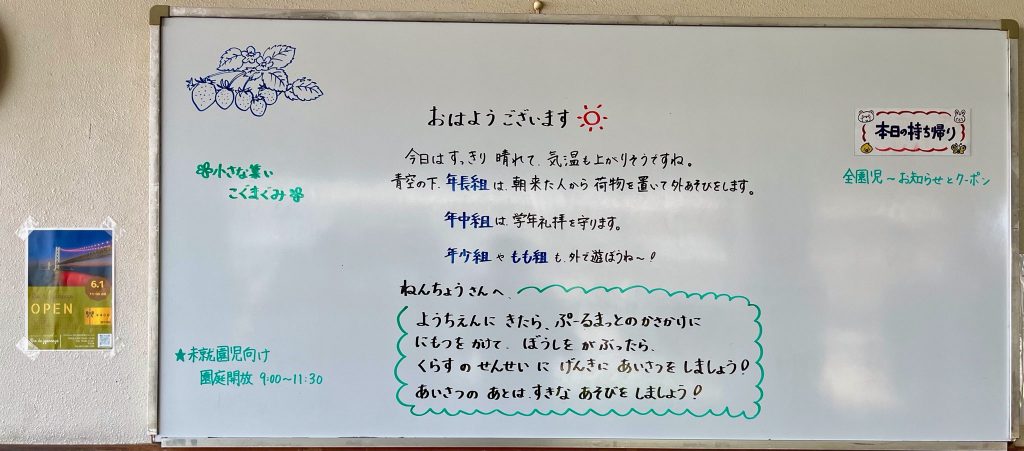 おはようございます
今日はすっきり晴れて、気温も上がりそうですね。
青空の下、年長組は、朝来た人から荷物を置いて外あそびをします。
年中組は、学年礼拝を守ります。
年少組やもも組も、外で遊ぼうね〜!
ねんちょうさんへ、
ようちえんに きたら、ぷーるまっとのかさかけに
にもつを かけて、ぼうしを かぶったら、
くらす の せんせい に げんきに あいさつを しましょう!
あいさつの あとは、すきな あそびを しましょう!
小さな集い
こぐまぐみ
★未就園児向け
園庭開放 9:00〜11:30
本日の持ち帰り
全園児〜お知らせとクーポン
6.1
OPEN